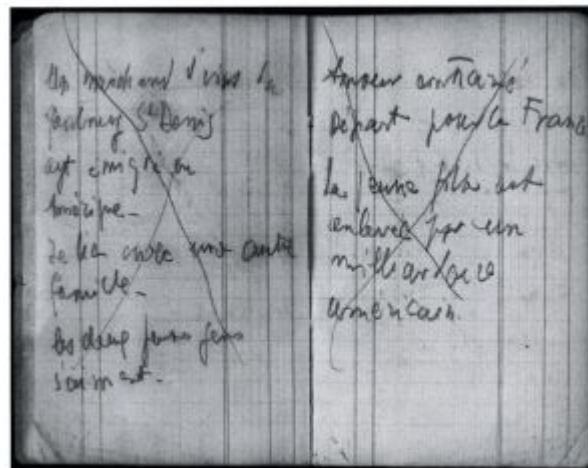 Un marchand d'vins du
faubourg St Denis
ayt émigré en
Amérique_
Se lie avec une autre
famille_
les deux jeunes gens
s'aiment_
Amour contrarié
Départ pour la France
La jeune fille est
enlevée par un
milliardaire
américain